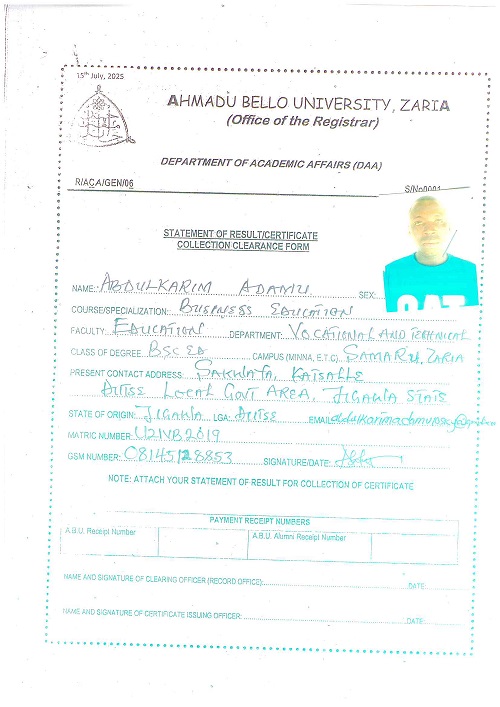 15th July, 2025
AHMADU BELLO UNIVERSITY, ZARIA
(Office of the Registrar)
DEPARTMENT OF ACADEMIC AFFAIRS (DAA)
R/ACA/GEN/06 S/No0001
STATEMENT OF RESULT/CERTIFICATE
COLLECTION CLEARANCE FORM
NAME: ABDULKARIM ADAMU SEX:
COURSE/SPECIALIZATION: BUSINESS EDUCATION
FACULTY EDUCATION DEPARTMENT: VOCATIONAL AND TECHNICAL
CLASS OF DEGREE BSC ED CAMPUS (MINNA, E.T.C) SAMARU, ZARIA
PRESENT CONTACT ADDRESS: SAKWAYA, KATSALLE
DUTSE LOCAL GOVT AREA, JIGAWA STATE
STATE OF ORIGIN: JIGAWA LGA: DUTSE EMAIL
MATRIC NUMBER U2NB2019
GSM NUMBER: 08145128853 SIGNATURE/DATE:
NOTE: ATTACH YOUR STATEMENT OF RESULT FOR COLLECTION OF CERTIFICATE
PAYMENT RECEIPT NUMBERS
A.B.U. Receipt Number A.B.U. Alumni Receipt Number
NAME AND SIGNATURE OF CLEARING OFFICER (RECORD OFFICE): DATE:
NAME AND SIGNATURE OF CERTIFICATE ISSUING OFFICER: DATE: